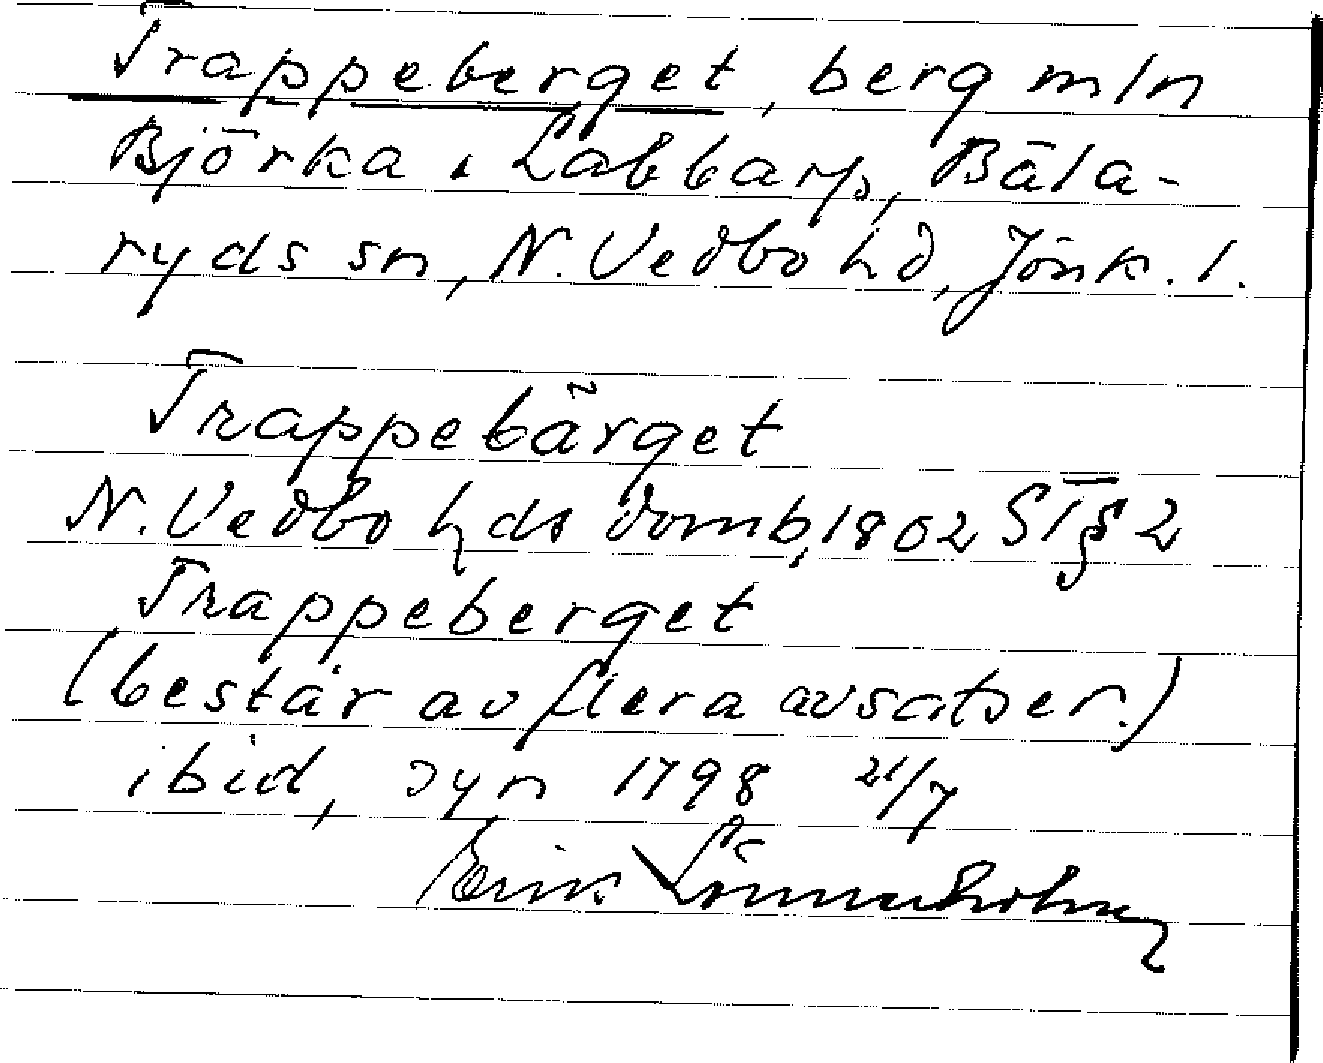 Trappeberget, berg mln
Björka o. Labbarp, Bäla-
ryds sn, N. Vedbo hd, Jönk. l.
Trappebärget
N. Vedbo hds domb, 1802 ST § 2
Trappeberget
(består av flera avsatser.)
ibid, syn 1798 21/7
Erik Lönnerholm